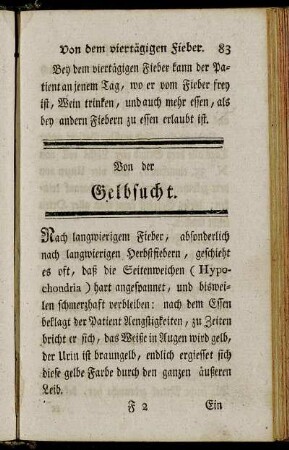 Von dem viertägigen Fieber. 83
Bey dem viertägigen Fieber kann der Pa-
tient an jenem Tag, wo er vom Fieber frey
ist, Wein trinken, und auch mehr essen, als
bey andern Fiebern zu essen erlaubt ist.
Von der
Gelbsucht.
Nach langwierigem Fieber, absonderlich
nach langwierigen Herbstfiebern, geschieht
es oft, daß die Seitenweichen (Hypo-
chondria) hart angespannet, und biswei-
len schmerzhaft verbleiben: nach dem Essen
beklagt der Patient Aengstigkeiten, zu Zeiten
bricht er sich, das Weiße in Augen wird gelb,
der Urin ist braungelb, endlich ergiesset sich
diese gelbe Farbe durch den ganzen äußeren
Leib.
F 2 Ein